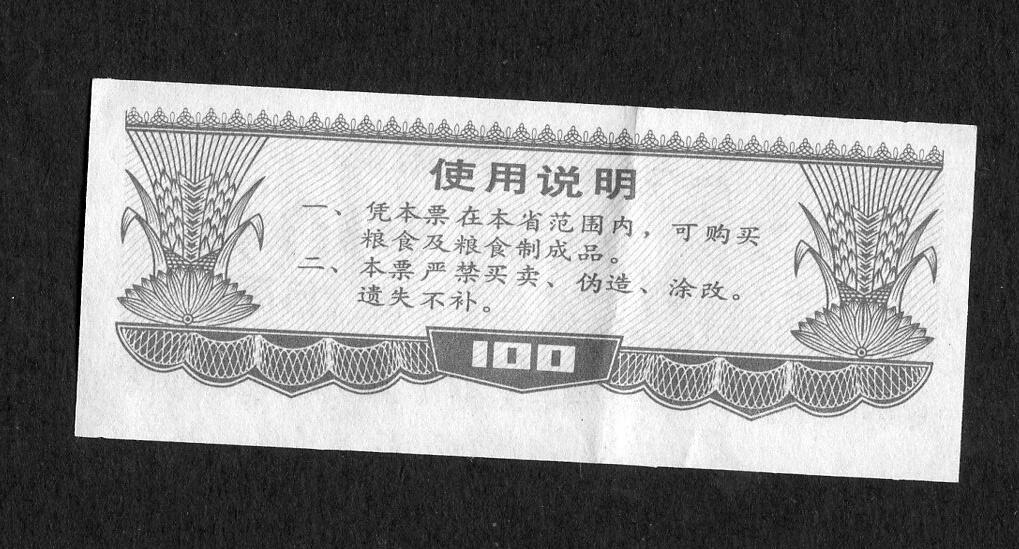 使用说明
一、凭本票在本省范围内，可购买
粮食及粮食制成品。
二、本票严禁买卖、伪造、涂改。
遗失不补。
100